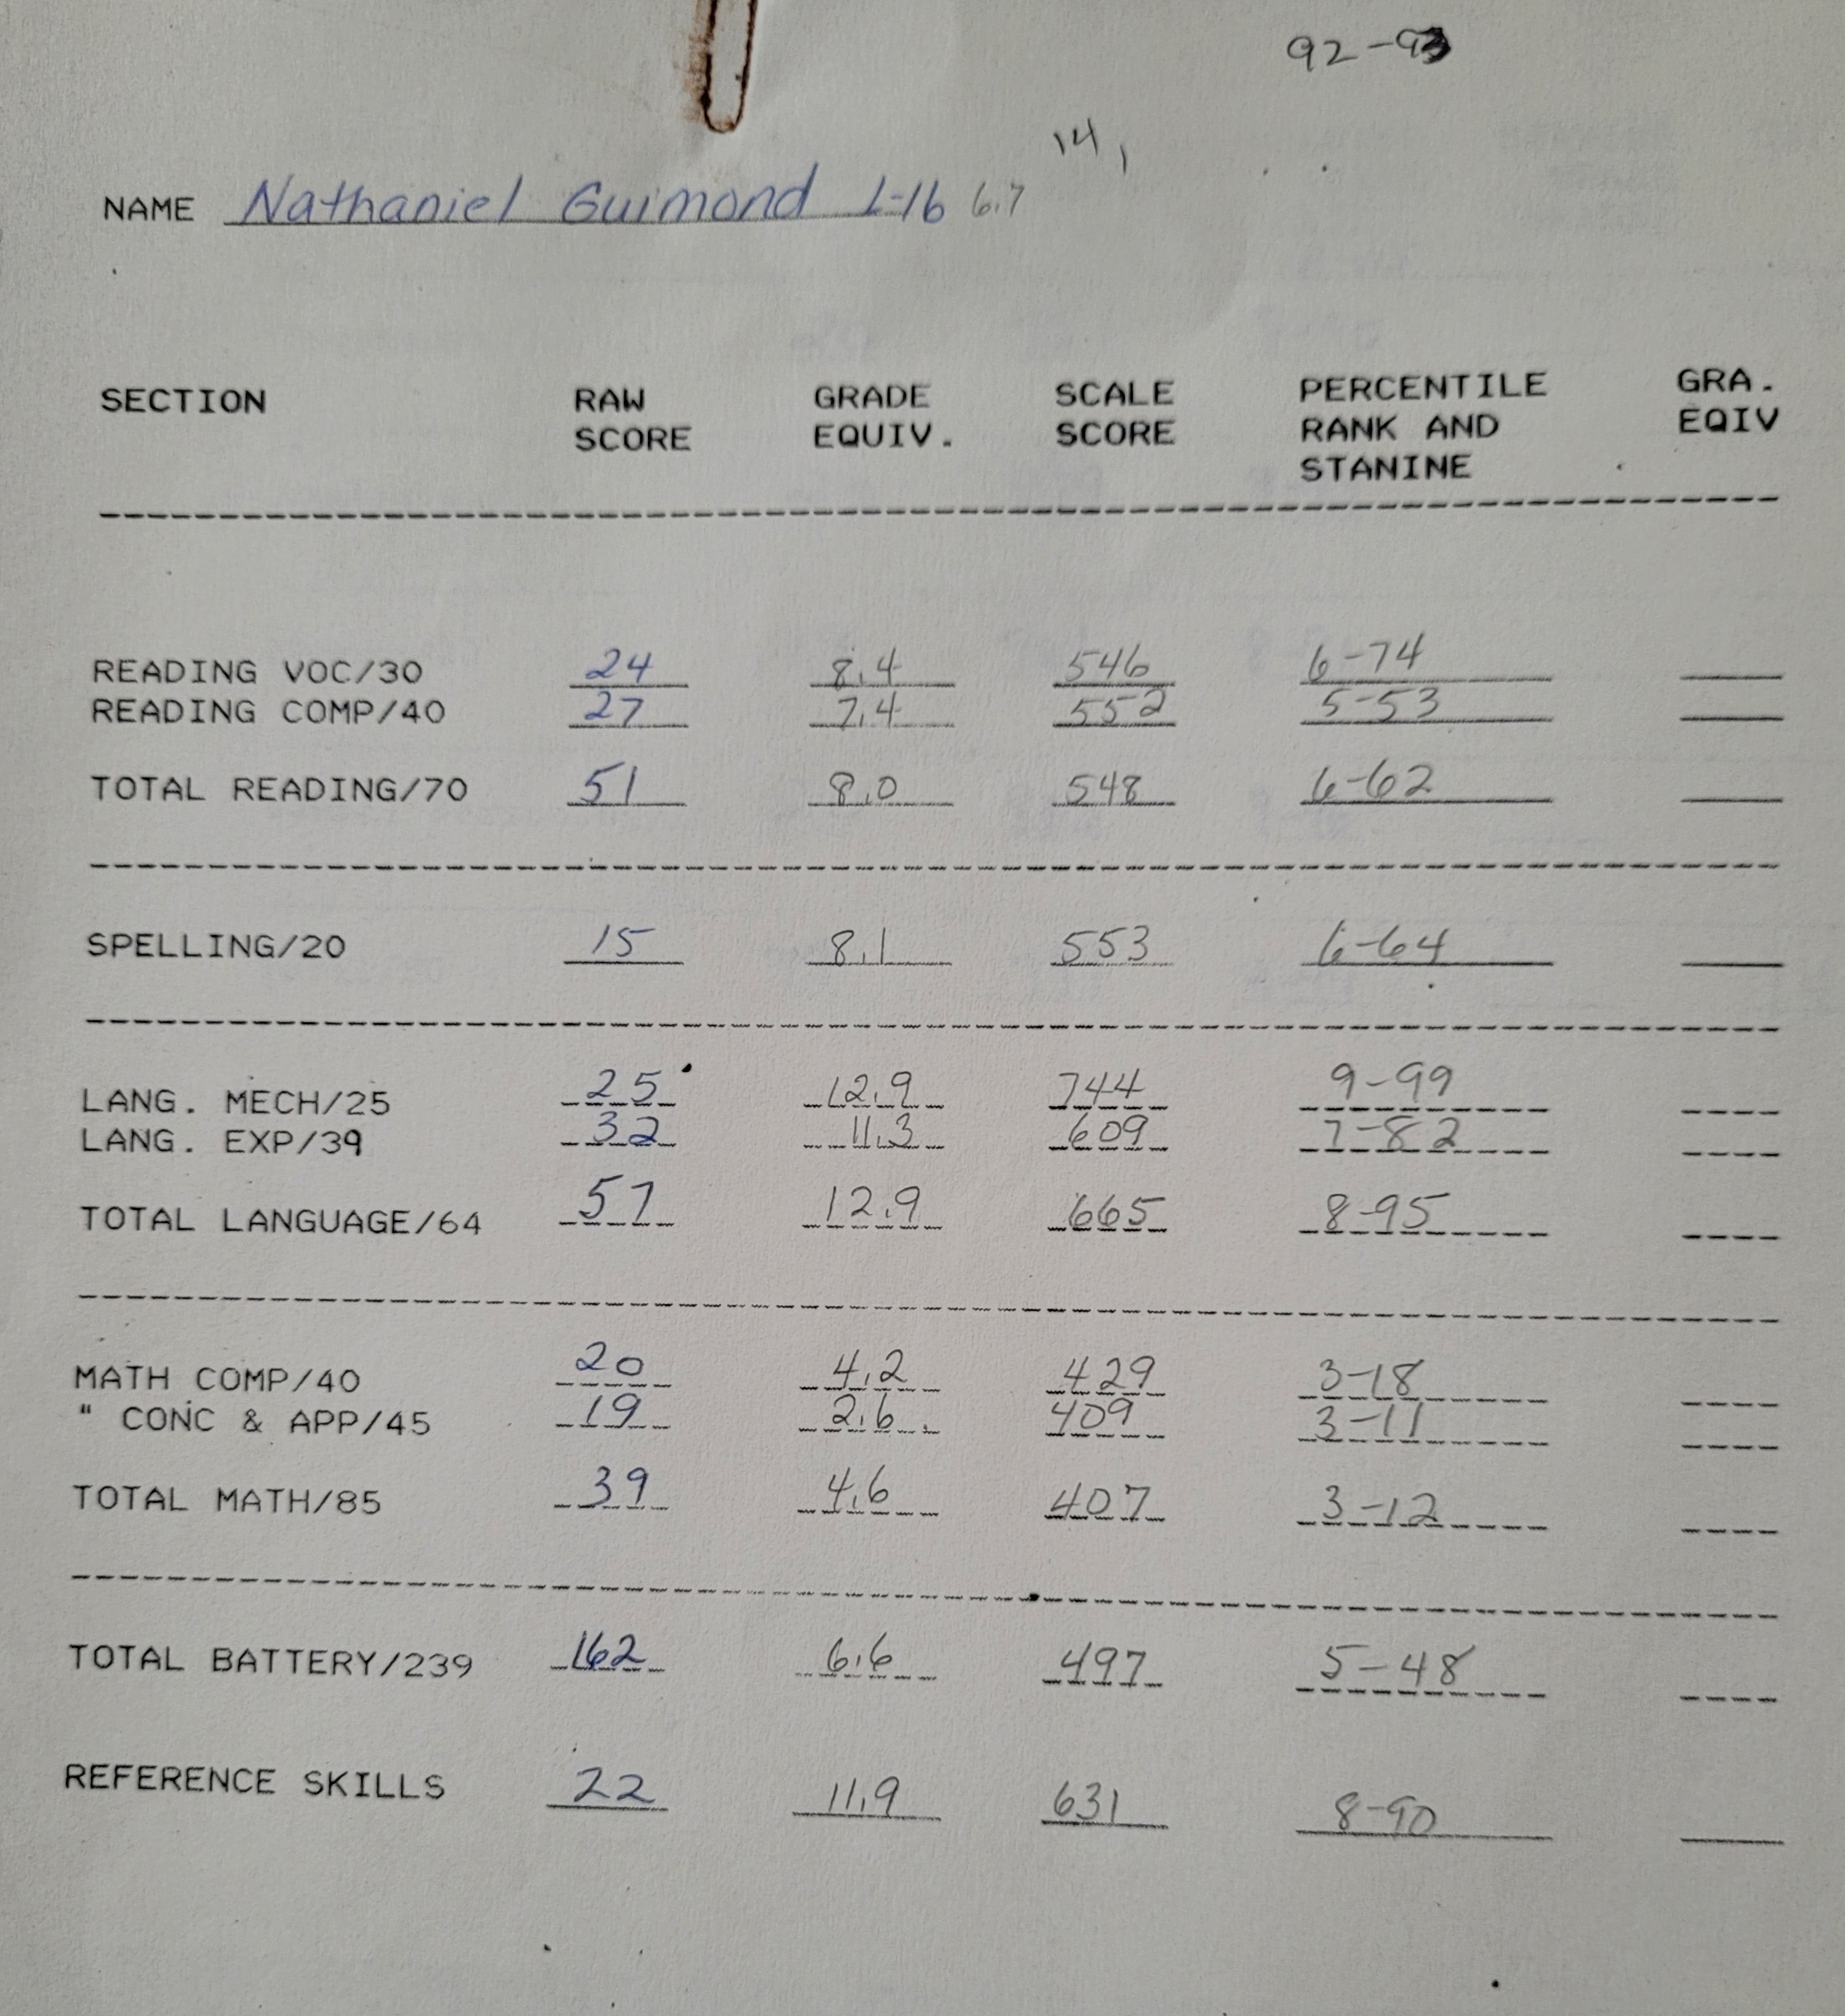 92-93
14,
NAME Nathaniel Guimond 1-16 6.7
SECTION RAW SCORE GRADE EQUIV. SCALE SCORE PERCENTILE RANK AND STANINE GRA. EQIV
READING VOC/30 24 8.4 546 6-74
READING COMP/40 27 7.4 552 5-53
TOTAL READING/70 51 8.0 548 6-62
SPELLING/20 15 8.1 553 6-64
LANG. MECH/25 25 12.9 744 9-99
LANG. EXP/39 32 11.3 609 7-82
TOTAL LANGUAGE/64 57 12.9 665 8-95
MATH COMP/40 20 4.2 429 3-18
" CONC & APP/45 19 2.6 409 3-11
TOTAL MATH/85 39 4.6 407 3-12
TOTAL BATTERY/239 162 6.6 497 5-48
REFERENCE SKILLS 22 11.9 631 8-90